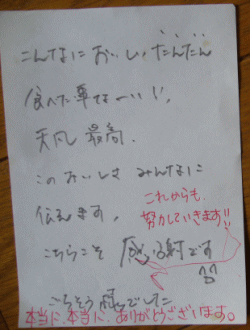 こんなに おいしい だんだん
食べた事な〜い!!
天ぷら 最高
このおいしさ みんなに
伝えます。
これからも
努力していきます!!
こちらこそ 感謝です
ごちそう様でした
本当に本当に、ありがとうございます。